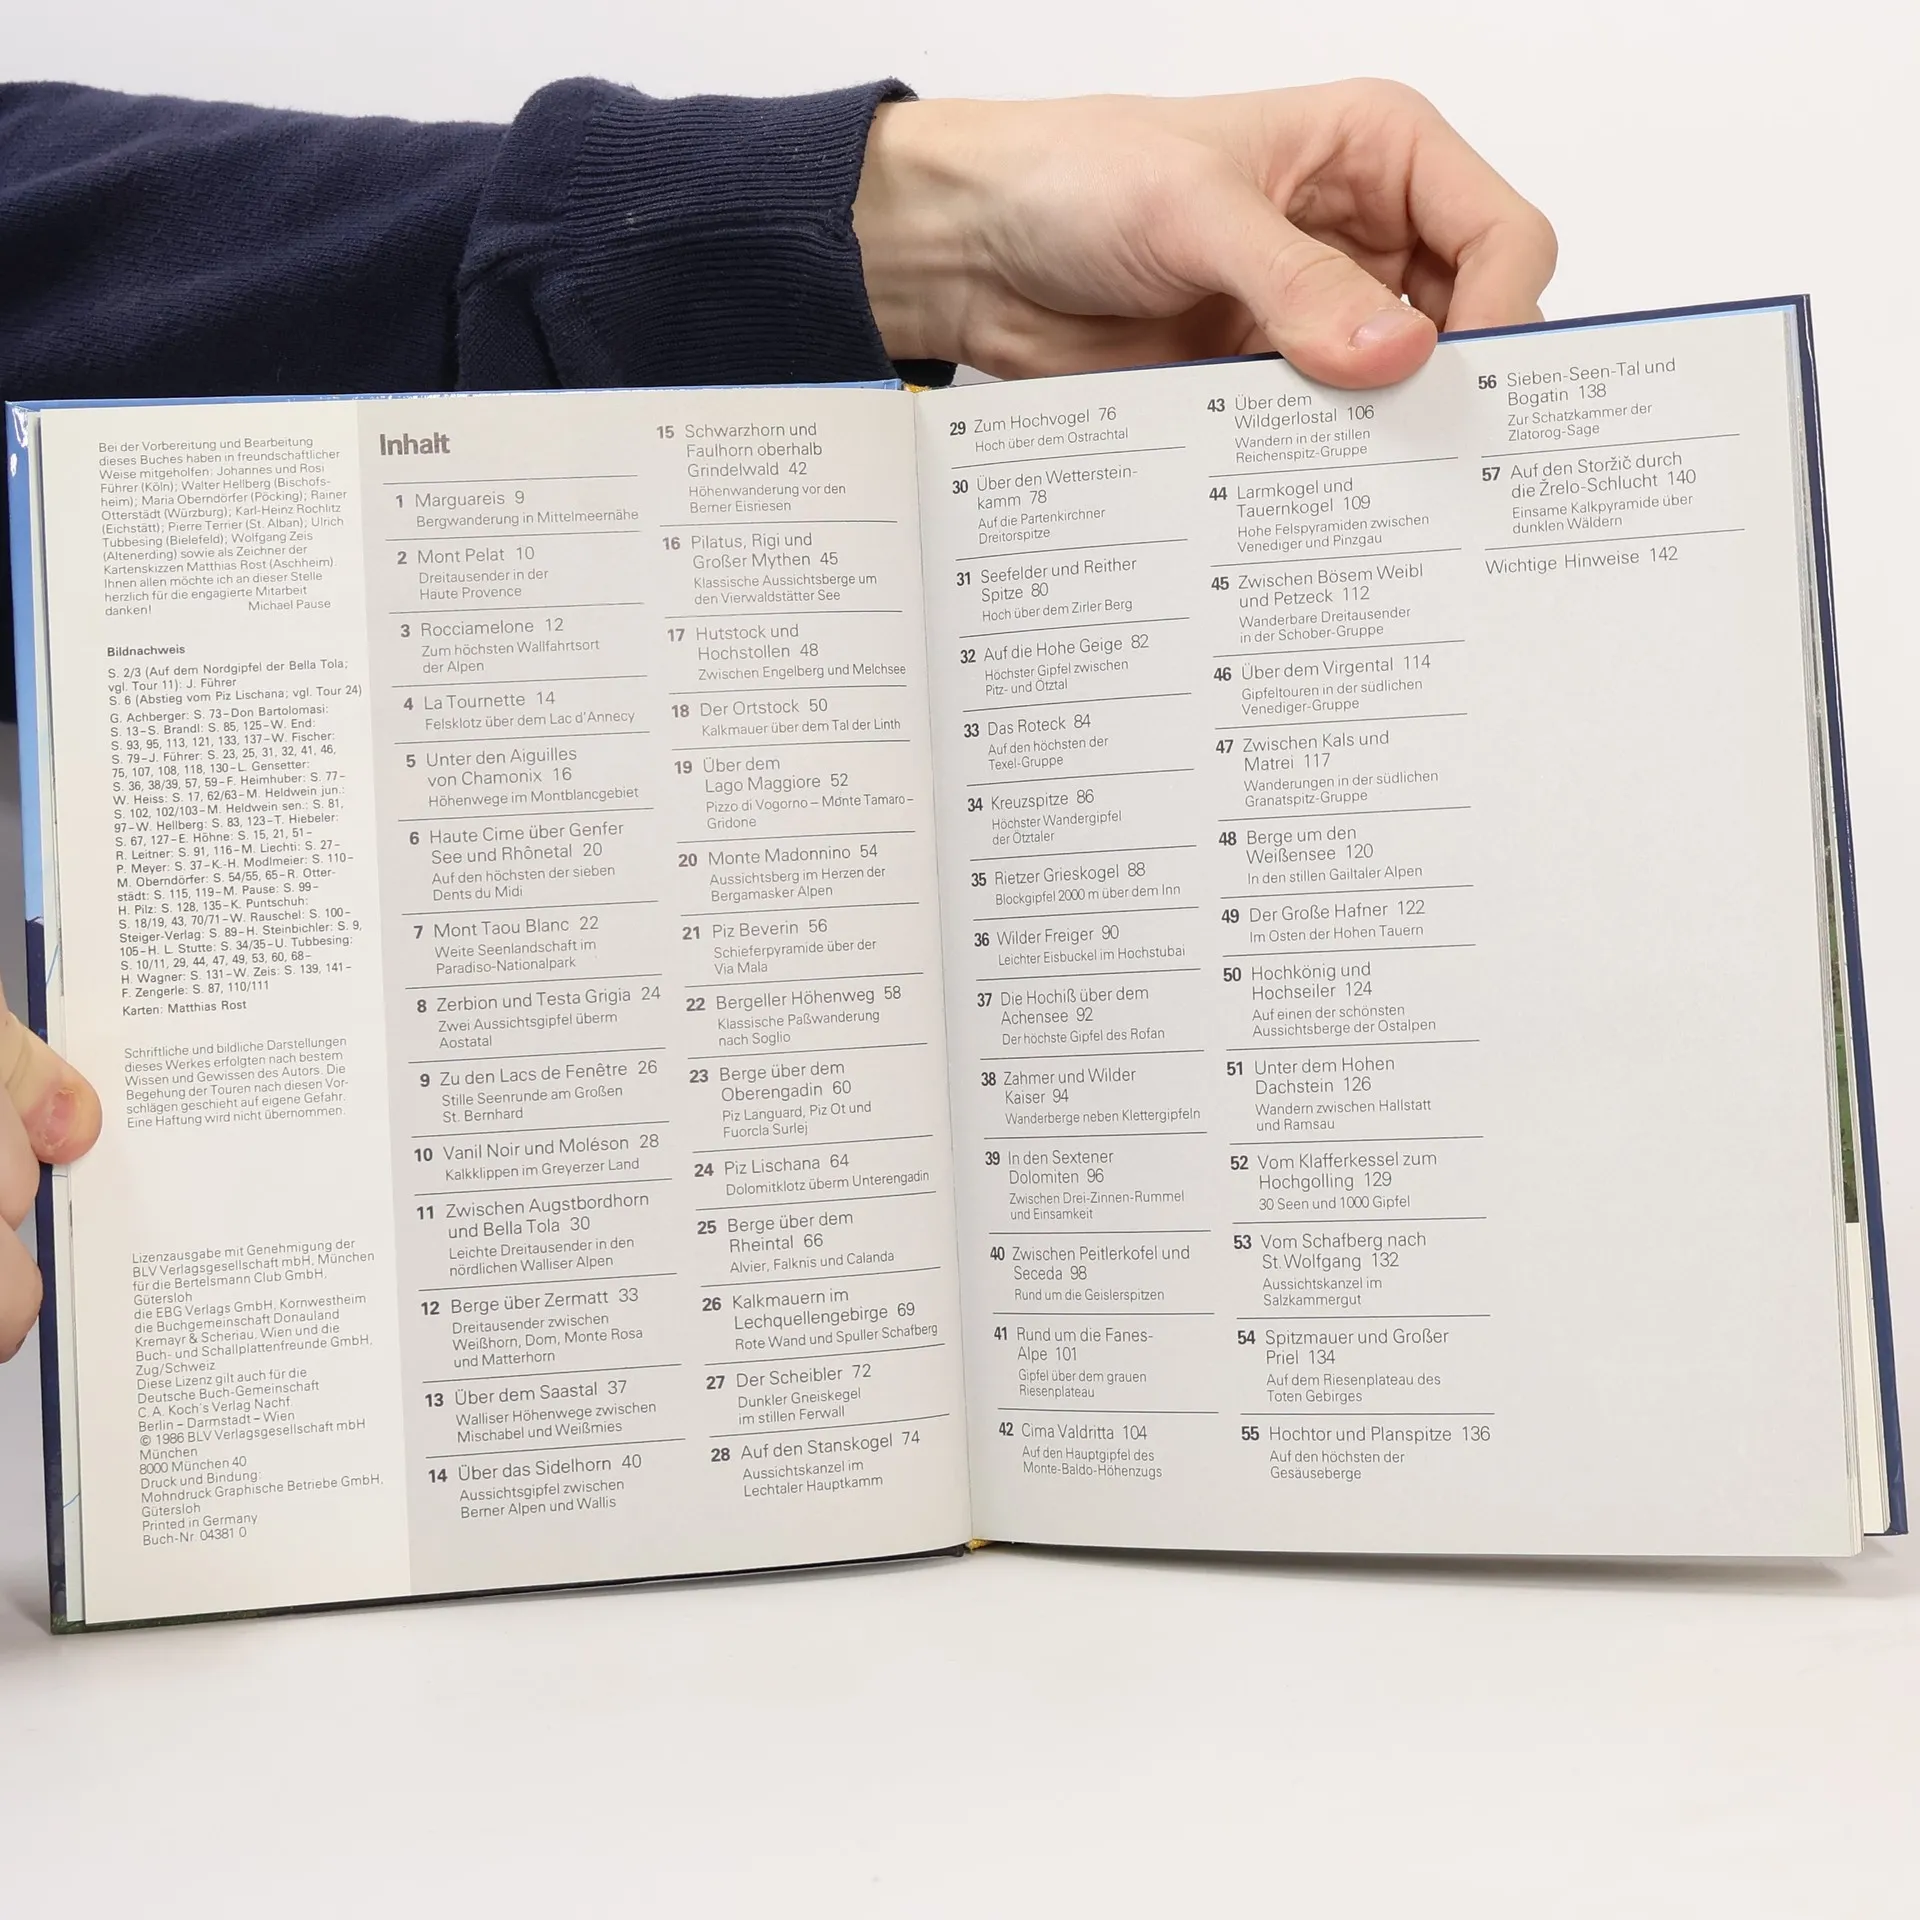 Bei der Vorbereitung und Bearbeitung
dieses Buches haben in freundschaftlicher
Weise mitgeholfen: Johannes und Rosi
Führer (Köln); Walter Hellberg (Bischofs-
heim); Maria Oberndörfer (Pöcking); Rainer
Otterstädt (Würzburg); Karl-Heinz Rochlitz
(Eichstätt); Pierre Terrier (St. Alban); Ulrich
Tubbesing (Bielefeld); Wolfgang Zeis
(Altenerding) sowie als Zeichner der
Kartenskizzen Matthias Rost (Aschheim).
Ihnen allen möchte ich an dieser Stelle
herzlich für die engagierte Mitarbeit
danken! Michael Pause
Bildnachweis
S. 2/3 (Auf dem Nordgipfel der Bella Tola;
vgl. Tour 11): J. Führer
S. 6 (Abstieg vom Piz Lischana; vgl. Tour 24)
G. Achberger: S. 73–Don Bartolomasi:
S. 13–S. Brandl: S. 85, 125–W. End:
S. 93, 95, 113, 121, 133, 137–W. Fischer:
S. 79–J. Führer: S. 23, 25, 31, 32, 41, 46,
75, 107, 108, 118, 130–L. Gensetter:
S. 36, 38/39, 57, 59–F. Heimhuber: S. 77–
W. Heiss: S. 17, 62/63–M. Heldwein jun.:
S. 102, 102/103–M. Heldwein sen.: S. 81,
97–W. Hellberg: S. 83, 123–T. Hiebeler:
S. 67, 127–E. Höhne: S. 15, 21, 51–
R. Leitner: S. 91, 116–M. Liechti: S. 27–
P. Meyer: S. 37–K.-H. Modlmeier: S. 110–
M. Oberndörfer: S. 54/55, 65–R. Otter-
städt: S. 115, 119–M. Pause: S. 99–
H. Pilz: S. 128, 135–K. Puntschuh:
S. 18/19, 43, 70/71–W. Rauschel: S. 100–
Steiger-Verlag: S. 89–H. Steinbichler: S. 9,
105–H. L. Stutte: S. 34/35–U. Tubbesing:
S. 10/11, 29, 44, 47, 49, 53, 60, 68–
H. Wagner: S. 131–W. Zeis: S. 139, 141–
F. Zengerle: S. 87, 110/111
Karten: Matthias Rost
Schriftliche und bildliche Darstellungen
dieses Werkes erfolgten nach bestem
Wissen und Gewissen des Autors. Die
Begehung der Touren nach diesen Vor-
schlägen geschieht auf eigene Gefahr.
Eine Haftung wird nicht übernommen.
Lizenzausgabe mit Genehmigung der
BLV Verlagsgesellschaft mbH, München
für die Bertelsmann Club GmbH,
Gütersloh
die EBG Verlags GmbH, Kornwestheim
die Buchgemeinschaft Donauland
Kremayr & Scheriau, Wien und die
Buch- und Schallplattenfreunde GmbH,
Zug/Schweiz
Diese Lizenz gilt auch für die
Deutsche Buch-Gemeinschaft
C. A. Koch's Verlag Nachf.
Berlin – Darmstadt – Wien
© 1986 BLV Verlagsgesellschaft mbH
München
8000 München 40
Druck und Bindung:
Mohndruck Graphische Betriebe GmbH,
Gütersloh
Printed in Germany
Buch-Nr. 04381 0
Inhalt
1 Marguareis 9
Bergwanderung in Mittelmeernähe
2 Mont Pelat 10
Dreitausender in der
Haute Provence
3 Rocciamelone 12
Zum höchsten Wallfahrtsort
der Alpen
4 La Tournette 14
Felsklotz über dem Lac d'Annecy
5 Unter den Aiguilles
von Chamonix 16
Höhenwege im Montblancgebiet
6 Haute Cime über Genfer
See und Rhônetal 20
Auf den höchsten der sieben
Dents du Midi
7 Mont Taou Blanc 22
Weite Seenlandschaft im
Paradiso-Nationalpark
8 Zerbion und Testa Grigia 24
Zwei Aussichtsgipfel überm
Aostatal
9 Zu den Lacs de Fenêtre 26
Stille Seenrunde am Großen
St. Bernhard
10 Vanil Noir und Moléson 28
Kalkklippen im Greyerzer Land
11 Zwischen Augstbordhorn
und Bella Tola 30
Leichte Dreitausender in den
nördlichen Walliser Alpen
12 Berge über Zermatt 33
Dreitausender zwischen
Weißhorn, Dom, Monte Rosa
und Matterhorn
13 Über dem Saastal 37
Walliser Höhenwege zwischen
Mischabel und Weißmies
14 Über das Sidelhorn 40
Aussichtsgipfel zwischen
Berner Alpen und Wallis
15 Schwarzhorn und
Faulhorn oberhalb
Grindelwald 42
Höhenwanderung vor den
Berner Eisriesen
16 Pilatus, Rigi und
Großer Mythen 45
Klassische Aussichtsberge um
den Vierwaldstätter See
17 Hutstock und
Hochstollen 48
Zwischen Engelberg und Melchsee
18 Der Ortstock 50
Kalkmauer über dem Tal der Linth
19 Über dem
Lago Maggiore 52
Pizzo di Vogorno – Monte Tamaro –
Gridone
20 Monte Madonnino 54
Aussichtsberg im Herzen der
Bergamasker Alpen
21 Piz Beverin 56
Schieferpyramide über der
Via Mala
22 Bergeller Höhenweg 58
Klassische Paßwanderung
nach Soglio
23 Berge über dem
Oberengadin 60
Piz Languard, Piz Ot und
Fuorcla Surlej
24 Piz Lischana 64
Dolomitklotz überm Unterengadin
25 Berge über dem
Rheintal 66
Alvier, Falknis und Calanda
26 Kalkmauern im
Lechquellengebirge 69
Rote Wand und Spuller Schafberg
27 Der Scheibler 72
Dunkler Gneiskegel
im stillen Ferwall
28 Auf den Stanskogel 74
Aussichtskanzel im
Lechtaler Hauptkamm
29 Zum Hochvogel 76
Hoch über dem Ostrachtal
30 Über den Wetterstein-
kamm 78
Auf die Partenkirchner
Dreitorspitze
31 Seefelder und Reither
Spitze 80
Hoch über dem Zirler Berg
32 Auf die Hohe Geige 82
Höchster Gipfel zwischen
Pitz- und Ötztal
33 Das Roteck 84
Auf den höchsten der
Texel-Gruppe
34 Kreuzspitze 86
Höchster Wandergipfel
der Ötztaler
35 Rietzer Grieskogel 88
Blockgipfel 2000 m über dem Inn
36 Wilder Freiger 90
Leichter Eisbuckel im Hochstubai
37 Die Hochiß über dem
Achensee 92
Der höchste Gipfel des Rofan
38 Zahmer und Wilder
Kaiser 94
Wanderberge neben Klettergipfeln
39 In den Sextener
Dolomiten 96
Zwischen Drei-Zinnen-Rummel
und Einsamkeit
40 Zwischen Peitlerkofel und
Seceda 98
Rund um die Geislerspitzen
41 Rund um die Fanes-
Alpe 101
Gipfel über dem grauen
Riesenplateau
42 Cima Valdritta 104
Auf den Hauptgipfel des
Monte-Baldo-Höhenzugs
43 Über dem
Wildgerlostal 106
Wandern in der stillen
Reichenspitz-Gruppe
44 Larmkogel und
Tauernkogel 109
Hohe Felspyramiden zwischen
Venediger und Pinzgau
45 Zwischen Bösem Weibl
und Petzeck 112
Wanderbare Dreitausender
in der Schober-Gruppe
46 Über dem Virgental 114
Gipfeltouren in der südlichen
Venediger-Gruppe
47 Zwischen Kals und
Matrei 117
Wanderungen in der südlichen
Granatspitz-Gruppe
48 Berge um den
Weißensee 120
In den stillen Gailtaler Alpen
49 Der Große Hafner 122
Im Osten der Hohen Tauern
50 Hochkönig und
Hochseiler 124
Auf einen der schönsten
Aussichtsberge der Ostalpen
51 Unter dem Hohen
Dachstein 126
Wandern zwischen Hallstatt
und Ramsau
52 Vom Klafferkessel zum
Hochgolling 129
30 Seen und 1000 Gipfel
53 Vom Schafberg nach
St. Wolfgang 132
Aussichtskanzel im
Salzkammergut
54 Spitzmauer und Großer
Priel 134
Auf dem Riesenplateau des
Toten Gebirges
55 Hochtor und Planspitze 136
Auf den höchsten der
Gesäuseberge
56 Sieben-Seen-Tal und
Bogatin 138
Zur Schatzkammer der
Zlatorog-Sage
57 Auf den Storžič durch
die Žrelo-Schlucht 140
Einsame Kalkpyramide über
dunklen Wäldern
Wichtige Hinweise 142